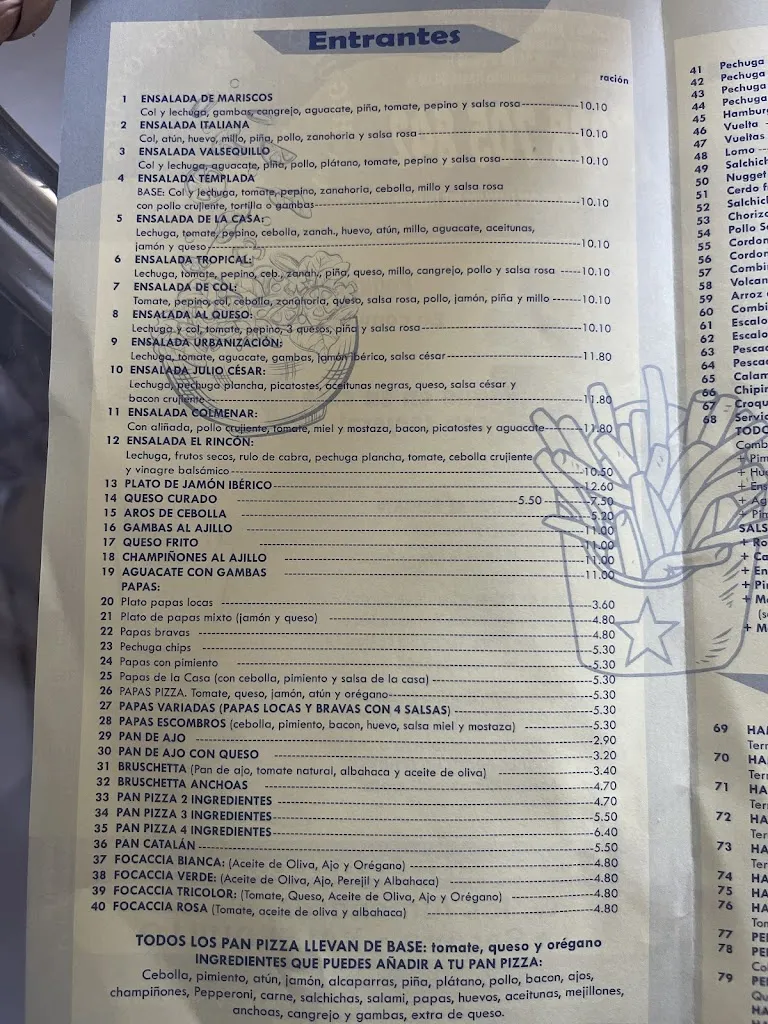 Entrantes
ración
1 ENSALADA DE MARISCOS
Col y lechuga, gambas, cangrejo, aguacate, piña, tomate, pepino y salsa rosa 10.10
2 ENSALADA ITALIANA
Col, atún, huevo, millo, piña, pollo, zanahoria y salsa rosa 10.10
3 ENSALADA VALSEQUILLO
Col y lechuga, aguacate, piña, pollo, plátano, tomate, pepino y salsa rosa 10.10
4 ENSALADA TEMPLADA
BASE: Col y lechuga, tomate, pepino, zanahoria, cebolla, millo y salsa rosa
con pollo crujiente, tortilla o gambas 10.10
5 ENSALADA DE LA CASA:
Lechuga, tomate, pepino, cebolla, zanah., huevo, atún, millo, aguacate, aceitunas,
jamón y queso 10.10
6 ENSALADA TROPICAL:
Lechuga, tomate, pepino, ceb., zanah., piña, queso, millo, cangrejo, pollo y salsa rosa 10.10
7 ENSALADA DE COL:
Tomate, pepino, col, cebolla, zanahoria, queso, salsa rosa, pollo, jamón, piña y millo 10.10
8 ENSALADA AL QUESO:
Lechuga y col, tomate, pepino, 3 quesos, piña y salsa rosa 10.10
9 ENSALADA URBANIZACIÓN:
Lechuga, tomate, aguacate, gambas, jamón ibérico, salsa césar 11.80
10 ENSALADA JULIO CÉSAR:
Lechuga, pechuga plancha, picatostes, aceitunas negras, queso, salsa césar y
bacon crujiente 11.80
11 ENSALADA COLMENAR:
Con aliñada, pollo crujiente, tomate, miel y mostaza, bacon, picatostes y aguacate 11.80
12 ENSALADA EL RINCÓN:
Lechuga, frutos secos, rulo de cabra, pechuga plancha, tomate, cebolla crujiente
y vinagre balsámico 10.50
13 PLATO DE JAMÓN IBÉRICO 12.60
14 QUESO CURADO 5.50 7.50
15 AROS DE CEBOLLA 5.20
16 GAMBAS AL AJILLO 11.00
17 QUESO FRITO 11.00
18 CHAMPIÑONES AL AJILLO 11.00
19 AGUACATE CON GAMBAS 11.00
PAPAS:
20 Plato papas locas 3.60
21 Plato de papas mixto (jamón y queso) 4.80
22 Papas bravas 4.80
23 Pechuga chips 5.30
24 Papas con pimiento 5.30
25 Papas de la Casa (con cebolla, pimiento y salsa de la casa) 5.30
26 PAPAS PIZZA. Tomate, queso, jamón, atún y orégano 5.30
27 PAPAS VARIADAS (PAPAS LOCAS Y BRAVAS CON 4 SALSAS) 5.30
28 PAPAS ESCOMBROS (cebolla, pimiento, bacon, huevo, salsa miel y mostaza) 5.30
29 PAN DE AJO 2.90
30 PAN DE AJO CON QUESO 3.20
31 BRUSCHETTA (Pan de ajo, tomate natural, albahaca y aceite de oliva) 3.40
32 BRUSCHETTA ANCHOAS 4.70
33 PAN PIZZA 2 INGREDIENTES 4.70
34 PAN PIZZA 3 INGREDIENTES 5.50
35 PAN PIZZA 4 INGREDIENTES 6.40
36 PAN CATALÁN 5.50
37 FOCACCIA BIANCA: (Aceite de Oliva, Ajo y Orégano) 4.80
38 FOCACCIA VERDE: (Aceite de Oliva, Ajo, Perejil y Albahaca) 4.80
39 FOCACCIA TRICOLOR: (Tomate, Queso, Aceite de Oliva, Ajo y Orégano) 4.80
40 FOCACCIA ROSA (Tomate, aceite de oliva y albahaca) 4.80
TODOS LOS PAN PIZZA LLEVAN DE BASE: tomate, queso y orégano
INGREDIENTES QUE PUEDES AÑADIR A TU PAN PIZZA:
Cebolla, pimiento, atún, jamón, alcaparras, piña, plátano, pollo, bacon, ajos,
champiñones, Pepperoni, carne, salchichas, salami, papas, huevos, aceitunas, mejillones,
anchoas, cangrejo y gambas, extra de queso.
41 Pechuga
42 Pechuga
43 Pechuga
44 Pechuga
45
46 Vuelta
47 Vueltas
48 Lomo
49
50 Nugget
51 Cerdo
52
53
54 Pollo
55
56
57
58 Volcan
59 Arroz
60
61
62
63
64
65
66
67
68
TODO
SALS
69
70
71
72
73
74
75
76
77
78
79